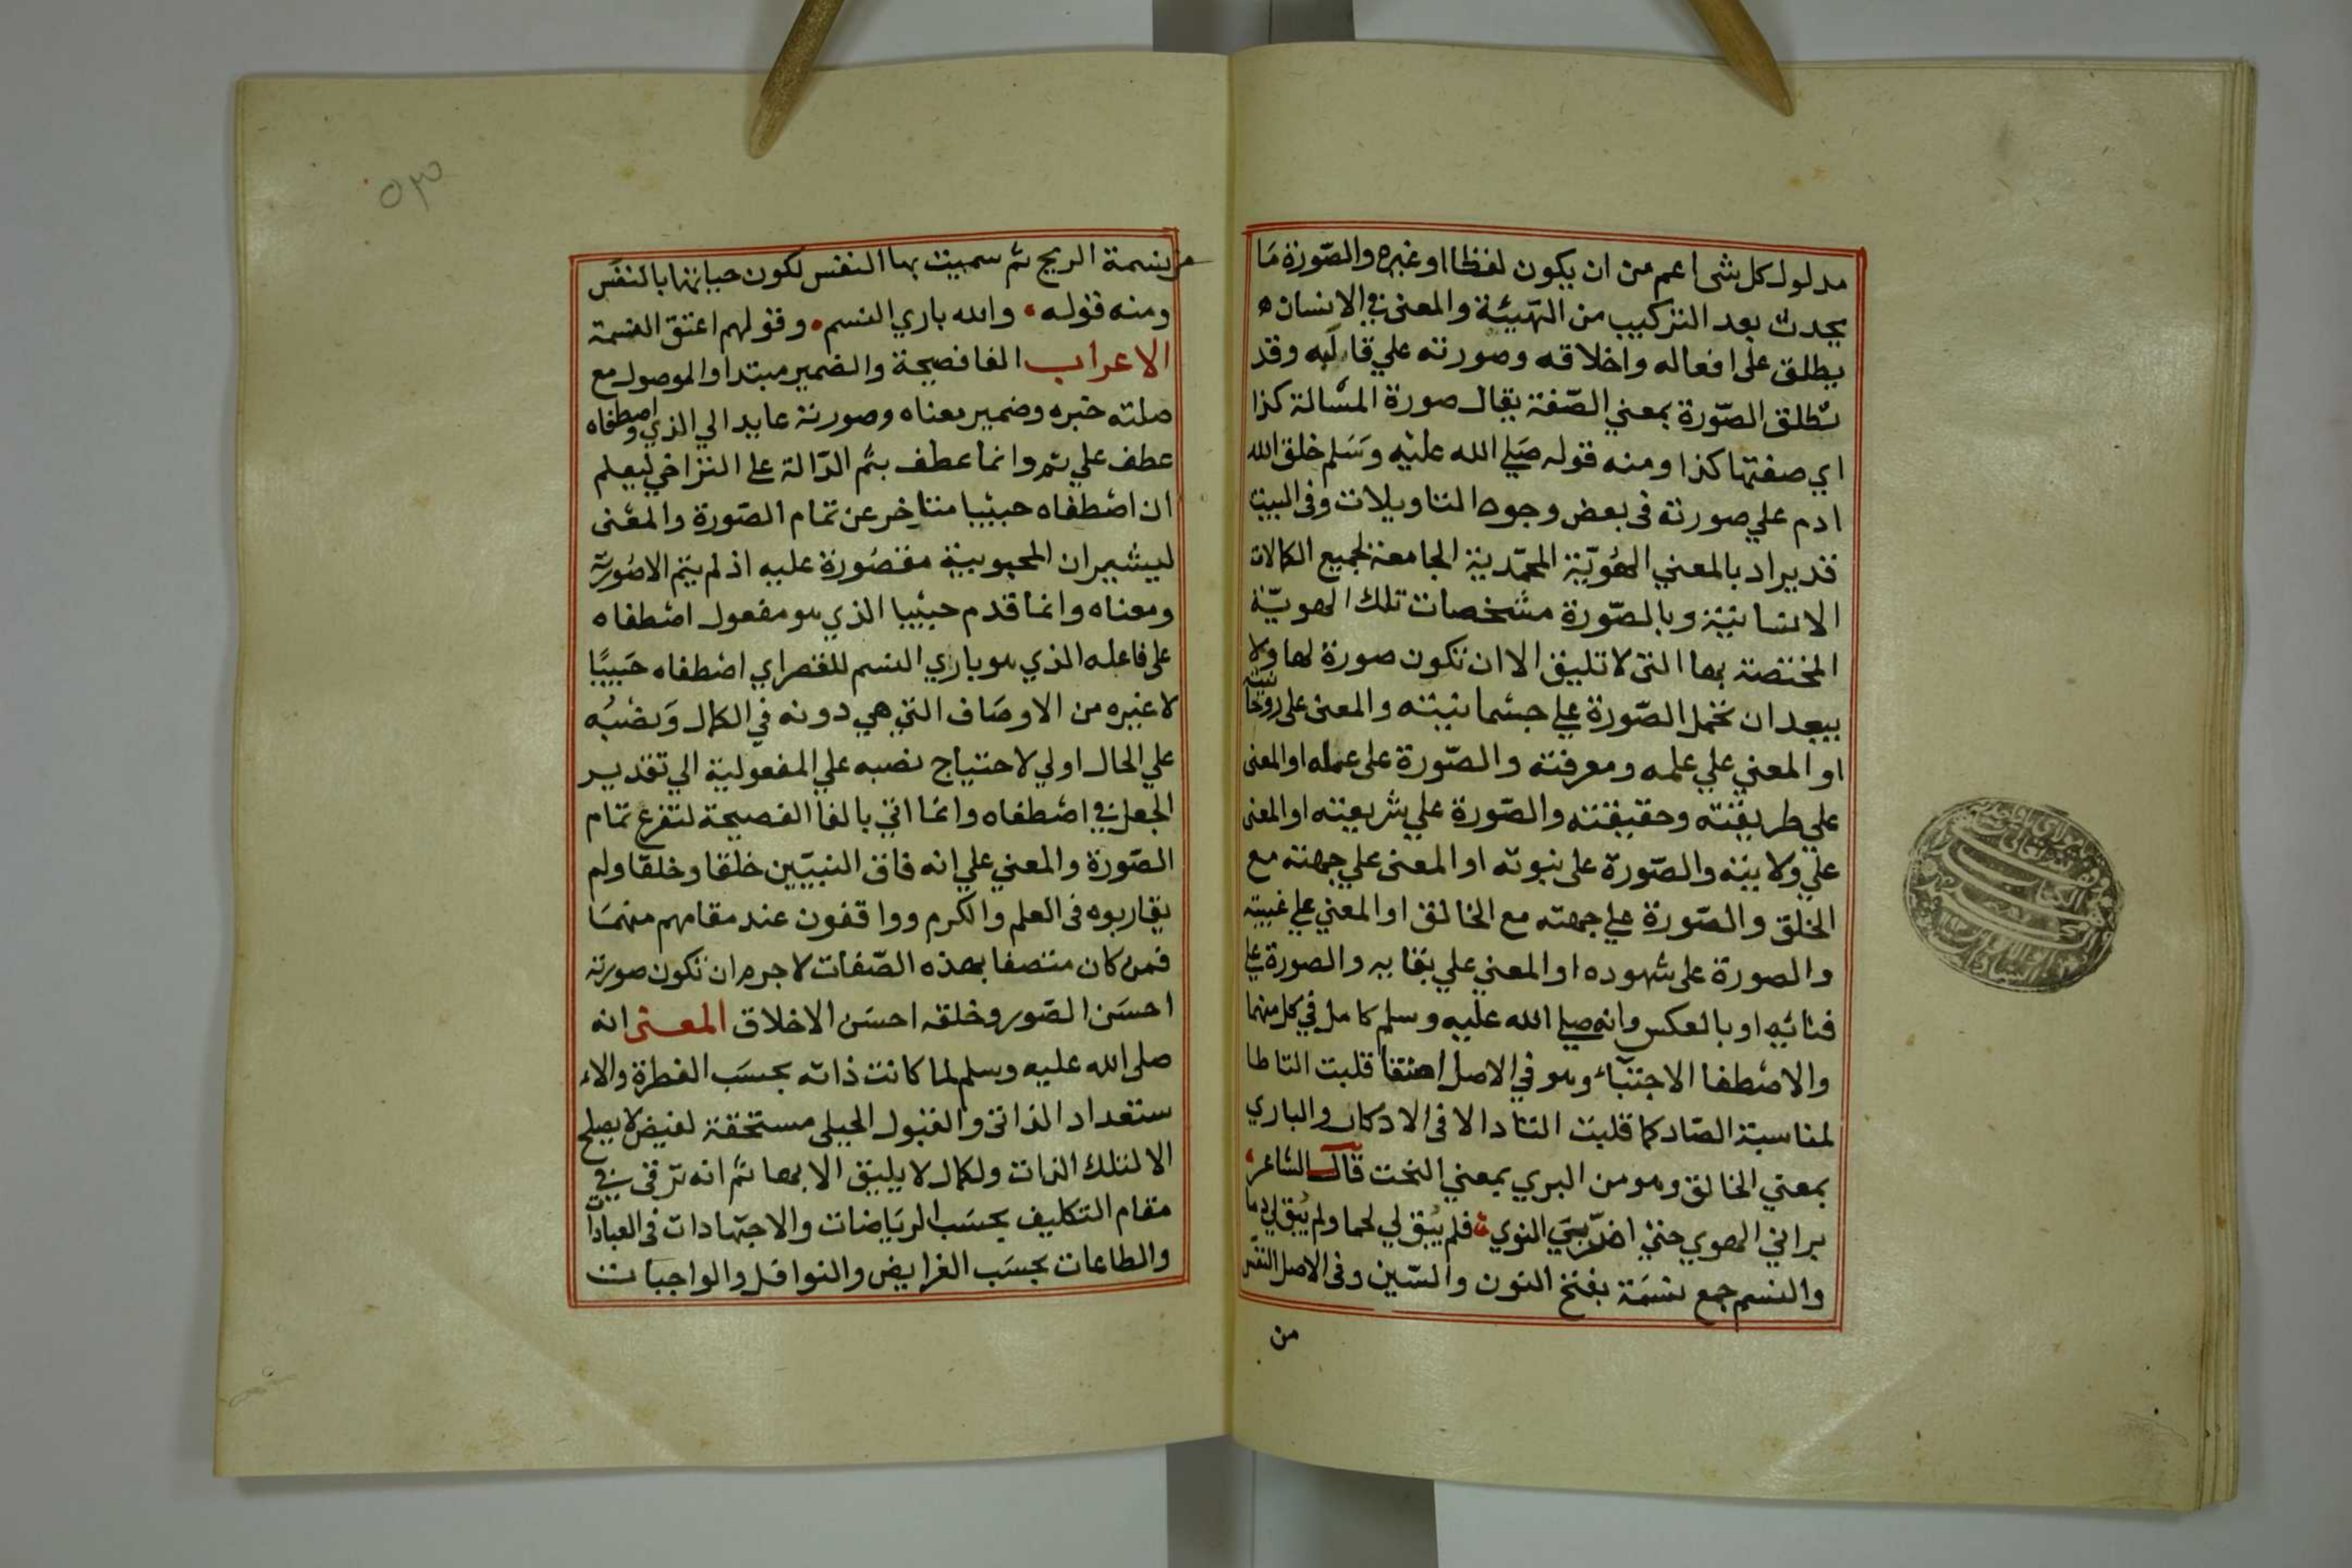 مدلول كل شى اعم من ان يكون لفظا او غيره والصّورة مَا
يحدث بعد التركيب من الهيئة والمعنى في الانسان
يطلق على افعاله واخلاقه وصورته علي قالَبه وقد
تطلق الصّورة بمعني الصّفة يقال صورة المسْالة كذا
اي صفتها كذا ومنه قوله صَلي الله عليْه وَسَلم خلق الله
ادم علي صورته في بعض وجوه التاويلات وفى البيت
قد يراد بالمعني الهُويّة المحمّدية الجامعة لجميع الكمالات
الانسانيّة وبالصّورة مشخصات تلك الهويّة
المختصة بها التى لا تليق الا ان تكون صورة لها ولا
يبعد ان تحمل الصّورة علي جسْمانيته والمعنى على روحانيته
او المعني علي علمه ومعرفته والصّورة على عمله او المعنى
علي طريقته وحقيقته والصّورة علي شريعته او المعنى
علي ولايته والصّورة على نبوته او المعنى علي جهته مع
الخلق والصّورة علي جهته مع الخالق او المعني علي غيبته
والصورة على شهوده او المعني علي بقايه والصورة علي
فنائيه او بالعكس وانه صلي الله عليه وسلم كامل في كل منهما
والاصْطفا الاجتبَاء وهو في الاصل اصتفا قلبت التا طا
لمناسبة الصّاد كما قلبت التا دالا فى الادكار والباري
بمعني الخالق وهو من البري بمعني النحت قال الشاعر
براني الهوي حتي اضرّ بيَ النوي فلم يُبق لي لحما ولم يُبق لي دما
والنسم جمع نسَمَة بفتح النون والسّين وفى الاصل النفَس
من
من نسمة الريح ثم سميت بها النفس لكون حياتها بالنفَس
ومنه قوله والله باري النسم وقولهم اعتق النسمة
الاعراب الفا فصيحة والضمير مبتدا والموصول مع
صلته خبره وضمير معناه وصورته عايد الي الذي واصطفاه
عطف علي تم وانما عطف بثم الدّالة على التراخي ليعلم
ان اصْطفاه حبيْبا متاخر عن تمام الصّورة والمعْنى
ليشير ان المحبوبية مقصُورة عليه اذ لم يتم الا صُورته
ومعناه وانما قدم حبيْبا الذي هو مفعول اصْطفاه
على فاعله الذي هو باري النسم للقصر اي اصْطفاه حَبيبًا
لا غيره من الاوصَاف التي هي دونه في الكمال وَنصْبُه
علي الحال اولي لاحتياج نصبه علي المفعولية الي تقدير
الجعل في اصْطفاه وانما اتي بالفا الفصيحة لتفرع تمام
الصّورة والمعني علي انه فاق النبيّين خلقا وخلقا ولم
يقاربوه فى العلم والكرم وواقفون عند مقامهم منهمَا
فمن كان متصفا بهذه الصّفات لا جرم ان تكون صورته
احسَن الصّور وخلقه احسَن الاخلاق المعنى انه
صلى الله عليه وسلم لما كانت ذاته بحسَب الفطرة والا
ستعداد الذاتى والقبول الجبلى مستحقة لفيض لا يصلح
الا لتلك الذات ولكمال لا يليق الا بها ثم انه ترقى في
مقام التكليف بحسَب الريَاضات والاجتهادات فى العبادات
والطاعات بحسَب الفرايض والنوافل والواجبات